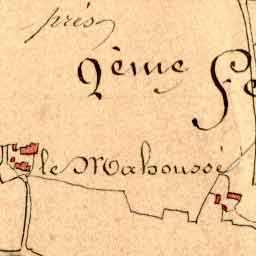 près
2ème Fe
le Mahoussé